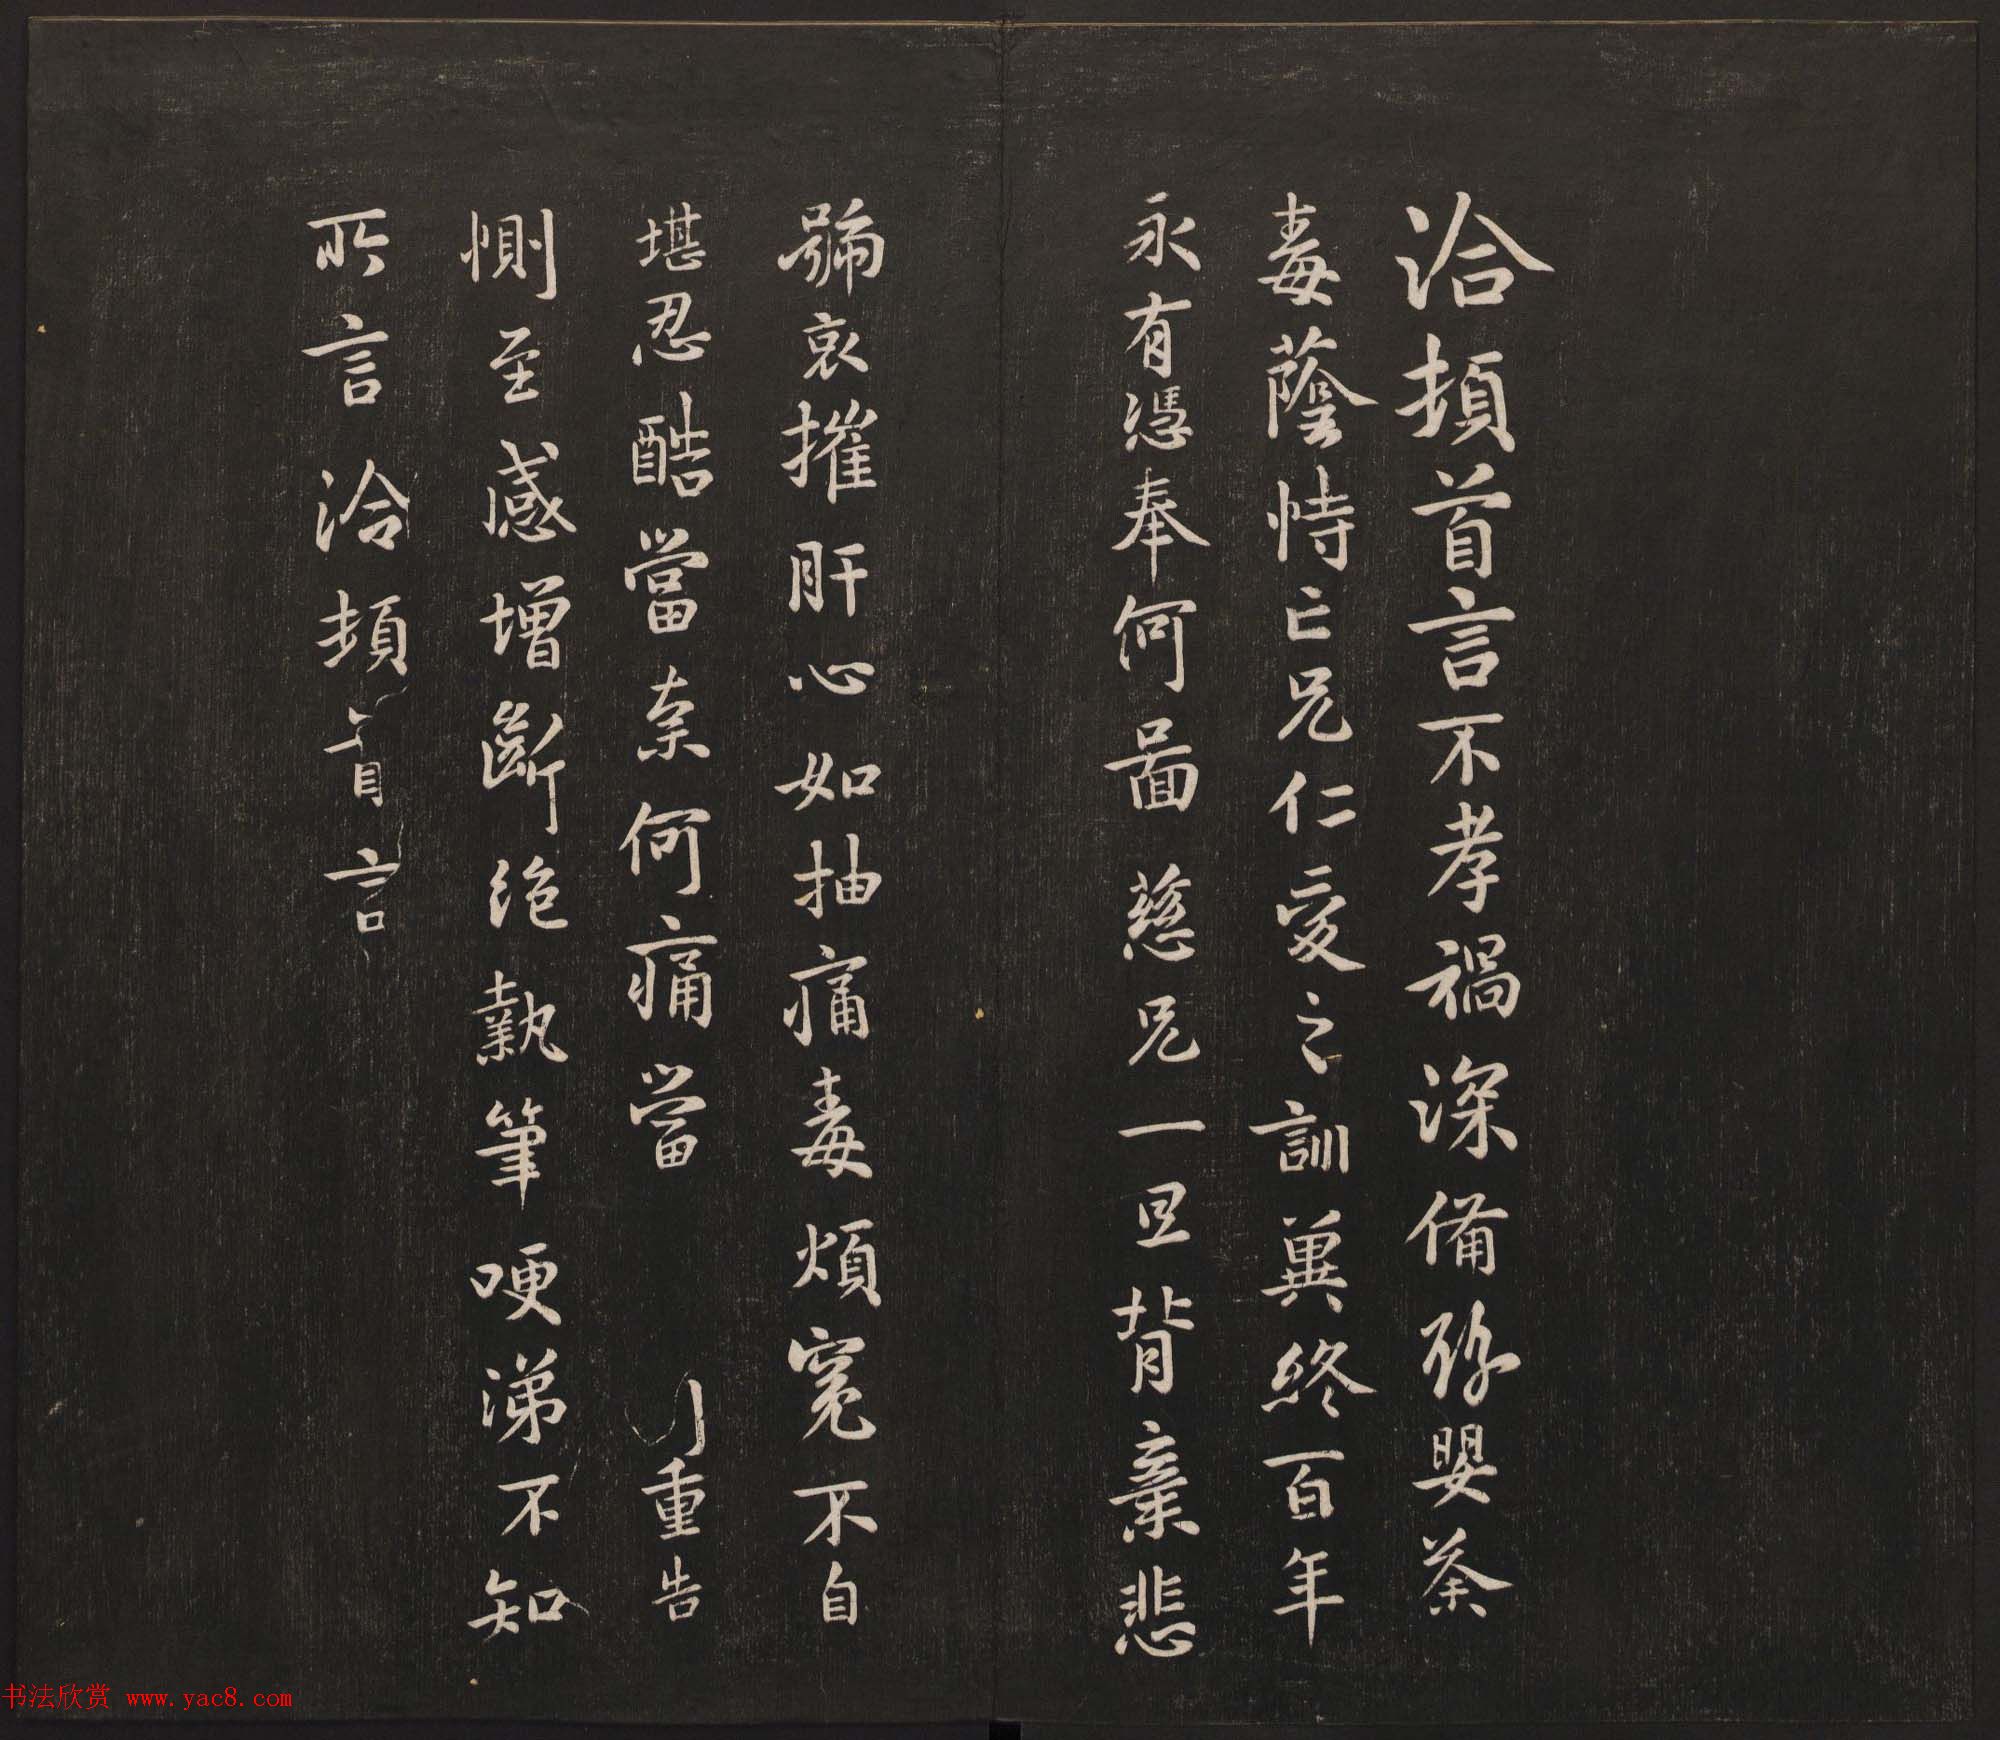 洽頓首言不孝禍深備豫嬰荼
毒蔭恃亡兄仁愛之訓冀終百年
永有憑奉何圖慈兄一旦背棄悲
號哀摧肝心如抽痛毒煩冤不自
堪忍酷當奈何痛當重告
惻至感增斷絕執筆哽涕不知
所言洽頓首言
书法欣赏 www.yac8.com